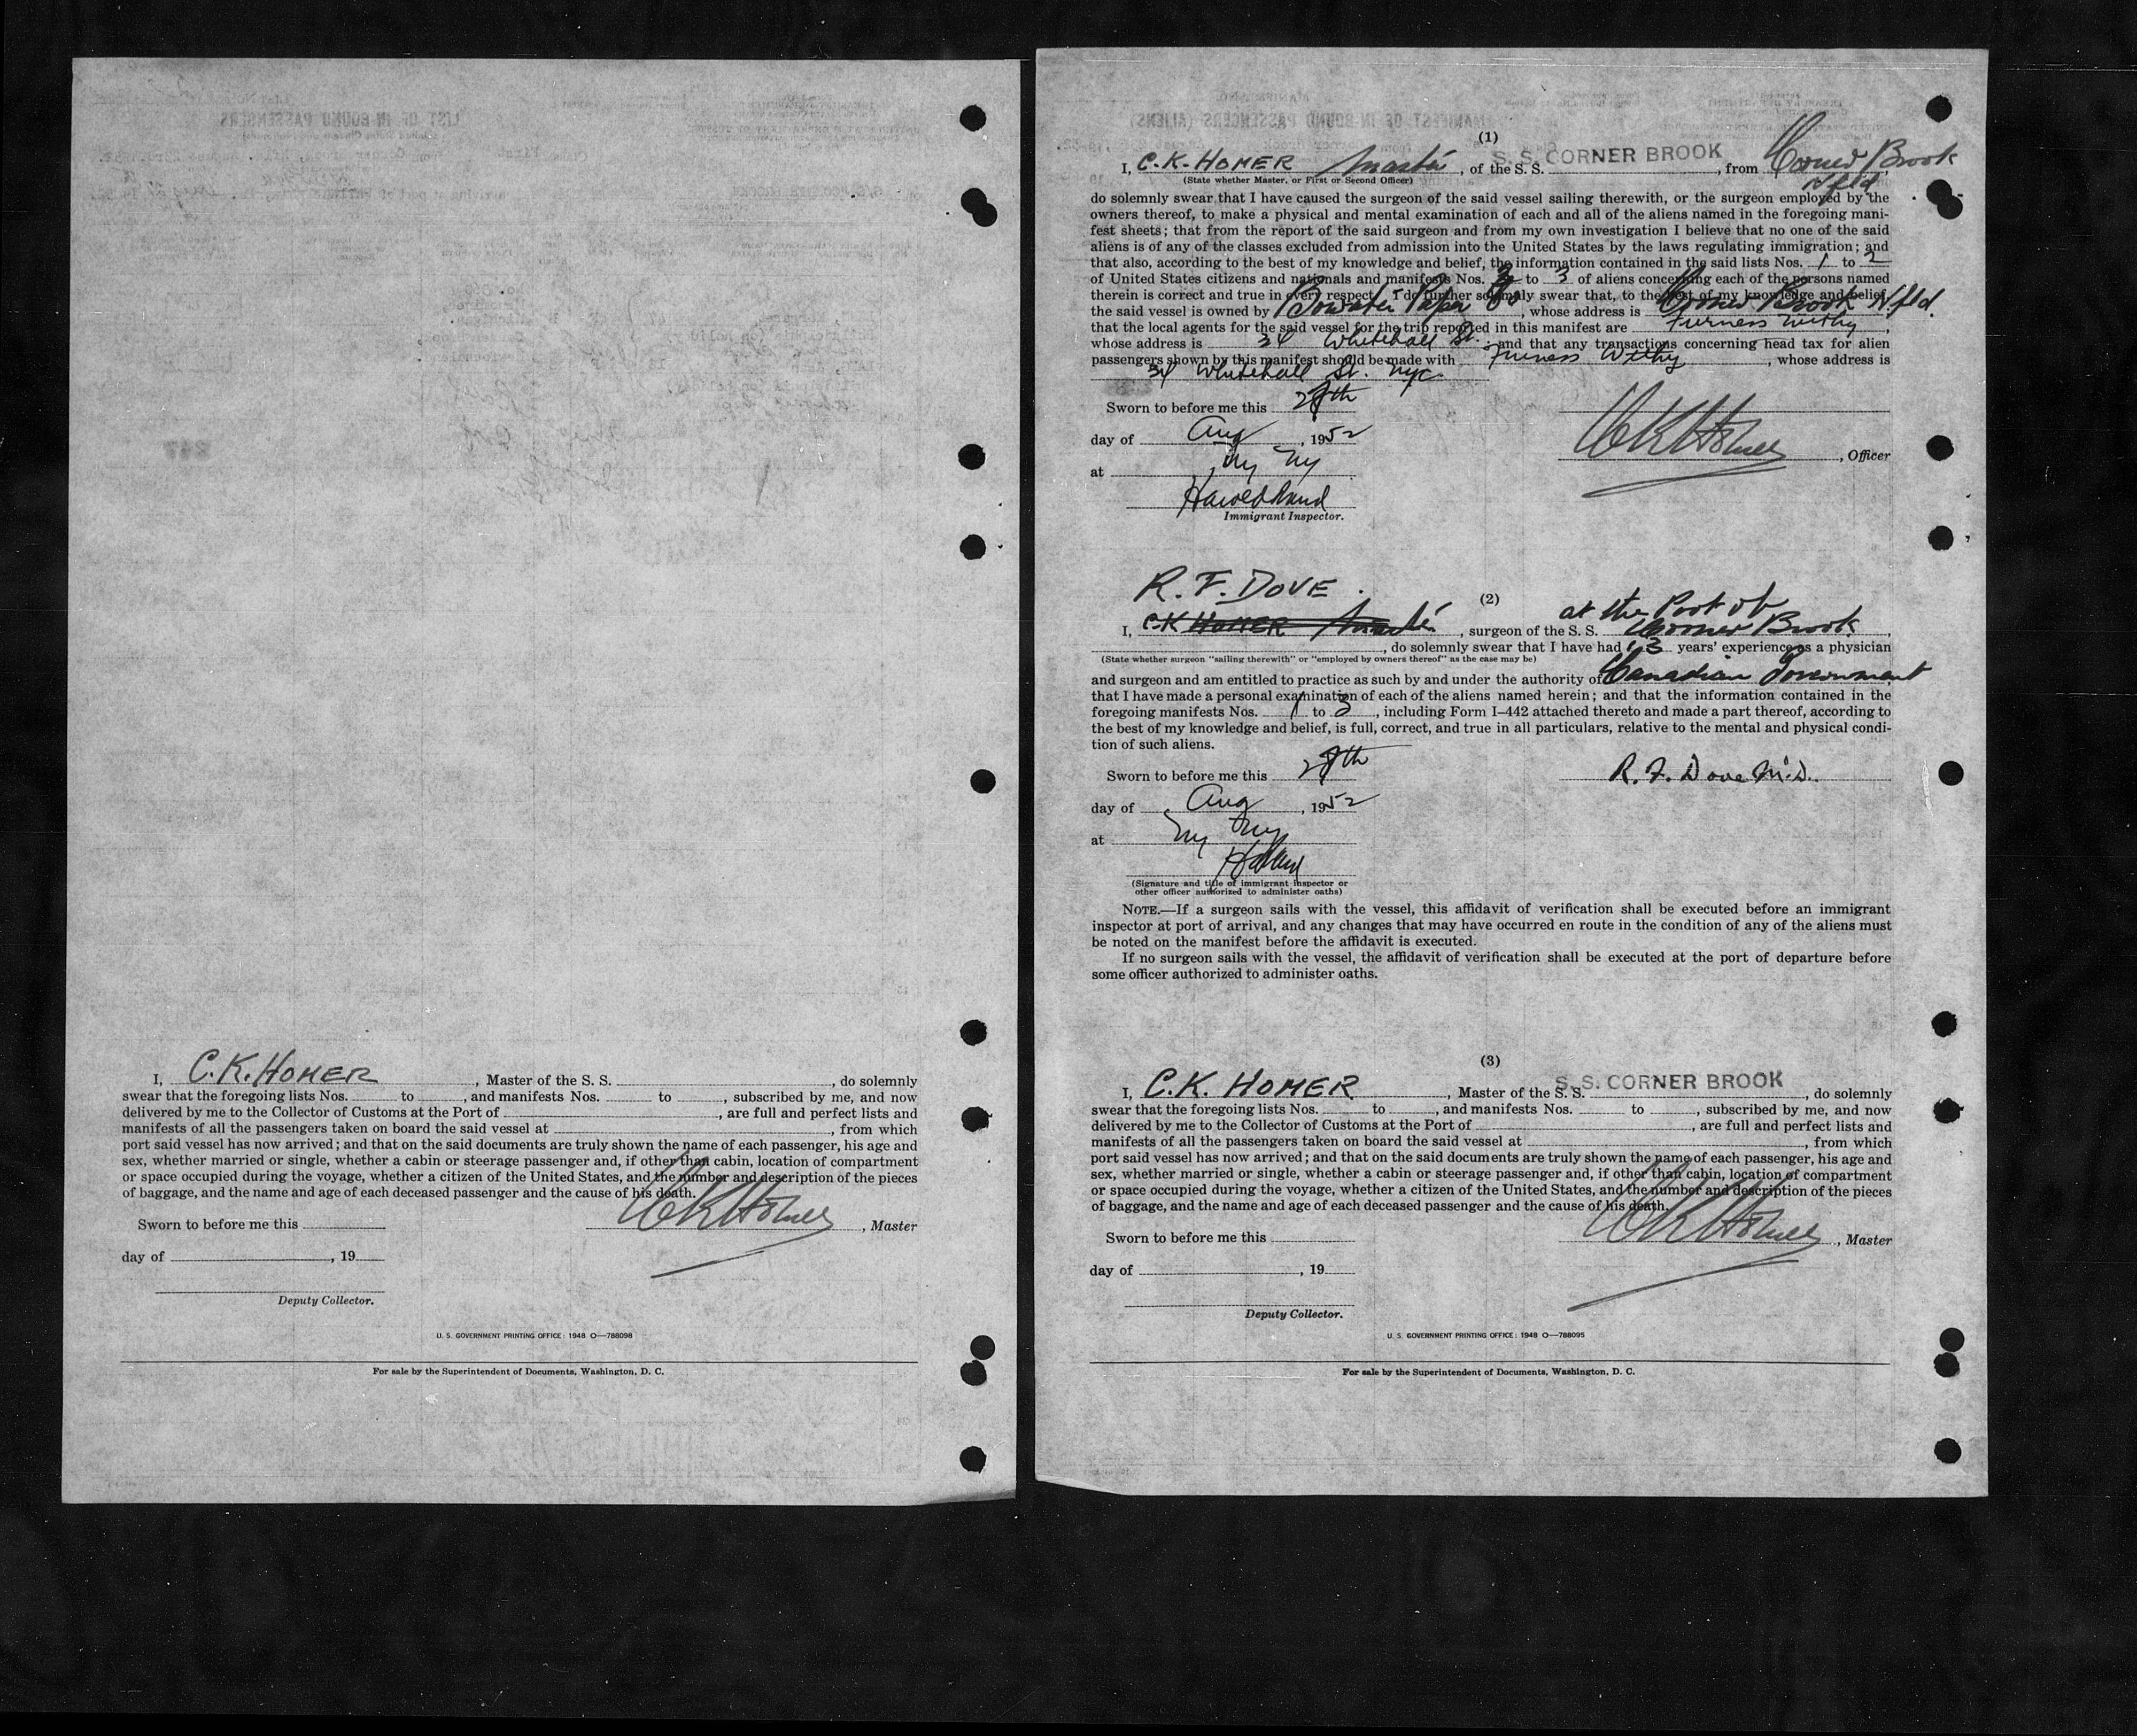 I, C.K. HOMER, Master of the S. S. , do solemnly
swear that the foregoing lists Nos. to , and manifests Nos. to , subscribed by me, and now
delivered by me to the Collector of Customs at the Port of , are full and perfect lists and
manifests of all the passengers taken on board the said vessel at , from which
port said vessel has now arrived; and that on the said documents are truly shown the name of each passenger, his age and
sex, whether married or single, whether a cabin or steerage passenger and, if other than cabin, location of compartment
or space occupied during the voyage, whether a citizen of the United States, and the number and description of the pieces
of baggage, and the name and age of each deceased passenger and the cause of his death.
Sworn to before me this
CKHomer, Master
day of , 19
Deputy Collector.
U. S. GOVERNMENT PRINTING OFFICE: 1948 O—788098
For sale by the Superintendent of Documents, Washington, D. C.
(1)
I, C.K. HOMER Master, of the S. S. S. S. CORNER BROOK, from Corner Brook
Nfld
(State whether Master, or First or Second Officer)
do solemnly swear that I have caused the surgeon of the said vessel sailing therewith, or the surgeon employed by the
owners thereof, to make a physical and mental examination of each and all of the aliens named in the foregoing mani-
fest sheets; that from the report of the said surgeon and from my own investigation I believe that no one of the said
aliens is of any of the classes excluded from admission into the United States by the laws regulating immigration; and
that also, according to the best of my knowledge and belief, the information contained in the said lists Nos. 1 to 2
of United States citizens and nationals and manifests Nos. 3 to 3 of aliens concerning each of the persons named
therein is correct and true in every respect. I do further solemnly swear that, to the best of my knowledge and belief,
the said vessel is owned by Bowater Paper , whose address is Corner Brook Nfld.
that the local agents for the said vessel for the trip reported in this manifest are Furness Withy,
whose address is 34 Whitehall St. and that any transactions concerning head tax for alien
passengers shown by this manifest should be made with Furness Withy, whose address is
34 Whitehall St. NYC
Sworn to before me this 28th
day of Aug, 1952
at NY NY
CKHomer, Officer
Immigrant Inspector.
R. F. DOVE.
(2)
at the Port of
I, C.K HOMER Master, surgeon of the S. S. Corner Brook,
, do solemnly swear that I have had 3 years' experience as a physician
(State whether surgeon "sailing therewith" or "employed by owners thereof" as the case may be)
and surgeon and am entitled to practice as such by and under the authority of Canadian Government
that I have made a personal examination of each of the aliens named herein; and that the information contained in the
foregoing manifests Nos. 1 to 3, including Form I-442 attached thereto and made a part thereof, according to
the best of my knowledge and belief, is full, correct, and true in all particulars, relative to the mental and physical condi-
tion of such aliens.
Sworn to before me this 28th
R. F. Dove M.D.
day of Aug, 1952
at NY NY
(Signature and title of immigrant inspector or
other officer authorized to administer oaths)
NOTE.—If a surgeon sails with the vessel, this affidavit of verification shall be executed before an immigrant
inspector at port of arrival, and any changes that may have occurred en route in the condition of any of the aliens must
be noted on the manifest before the affidavit is executed.
If no surgeon sails with the vessel, the affidavit of verification shall be executed at the port of departure before
some officer authorized to administer oaths.
(3)
I, C.K. HOMER, Master of the S. S. S. S. CORNER BROOK, do solemnly
swear that the foregoing lists Nos. to , and manifests Nos. to , subscribed by me, and now
delivered by me to the Collector of Customs at the Port of , are full and perfect lists and
manifests of all the passengers taken on board the said vessel at , from which
port said vessel has now arrived; and that on the said documents are truly shown the name of each passenger, his age and
sex, whether married or single, whether a cabin or steerage passenger and, if other than cabin, location of compartment
or space occupied during the voyage, whether a citizen of the United States, and the number and description of the pieces
of baggage, and the name and age of each deceased passenger and the cause of his death.
Sworn to before me this
CKHomer, Master
day of , 19
Deputy Collector.
U. S. GOVERNMENT PRINTING OFFICE: 1948 O—788095
For sale by the Superintendent of Documents, Washington, D. C.